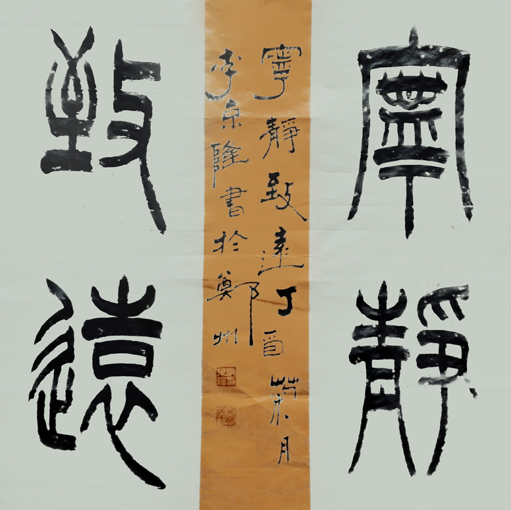 寧靜
致遠
寧靜致遠丁酉榮月
李京隆書於鄭州